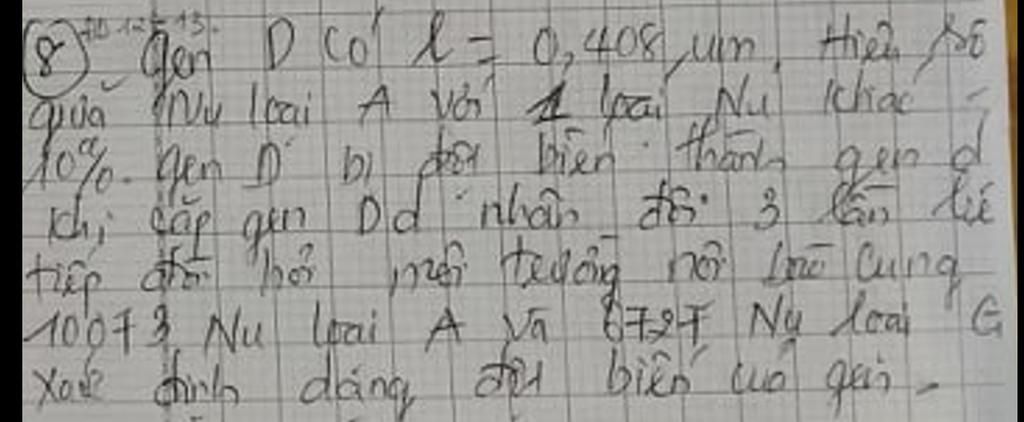 8 Gen D có l = 0,408 µm. Hiệu số
giữa Nu loại A với 1 loại Nu khác =
10%. gen D bị đột biến thành gen d
khi cặp gen Dd nhân đôi 3 lần liê
tiếp đòi hỏi môi trường nội bào cung
10073 Nu loại A và 6727 Nu loại G
xác định dạng đột biến của gen -